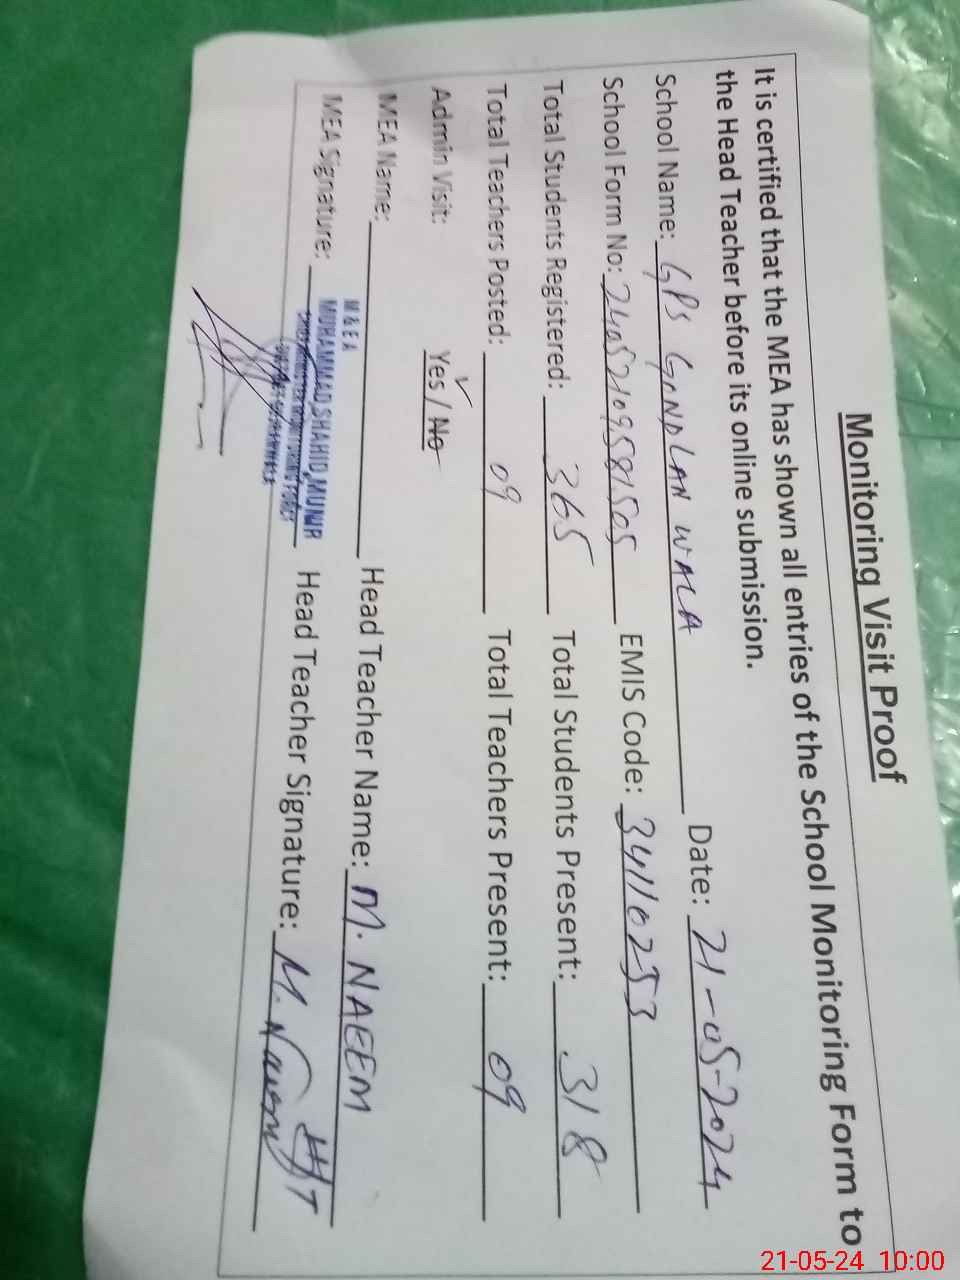 Monitoring Visit Proof
It is certified that the MEA has shown all entries of the School Monitoring Form to
the Head Teacher before its online submission.
School Name: GPS GONDLAN WALA Date: 21-05-2024
School Form No: 24052109581505 EMIS Code: 34110253
Total Students Registered: 365 Total Students Present: 318
Total Teachers Posted: 09 Total Teachers Present: 09
Admin Visit: Yes / No
MEA Name: Head Teacher Name: M. NAEEM
M & E A
MUHAMMAD SHAHID MUNIR
CHIEF MINISTER MONITORING FORCE
MEA Signature: Head Teacher Signature: M. Naeem
21-05-24 10:00